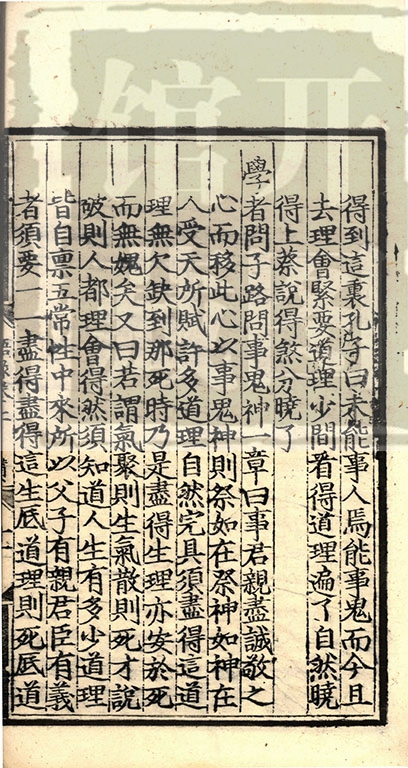 得到這裏孔子曰未能事人焉能事鬼而今且
去理會緊要道理少間看得道理遍了自然曉
得上蔡說得煞分曉了
學者問子路問事鬼神一章曰事君親盡誠敬之
心而移此心以事鬼神則祭如在祭神如神在
人受天所賦許多道理自然完具須盡得這道
理無欠缺到那死時乃是盡得生理亦安於死
而無媿矣又曰若謂氣聚則生氣散則死才說
破則人都理會得然須知道人生有多少道理
皆自禀五常性中來所以父子有親君臣有義
者須要一一盡得盡得這生底道理則死底道